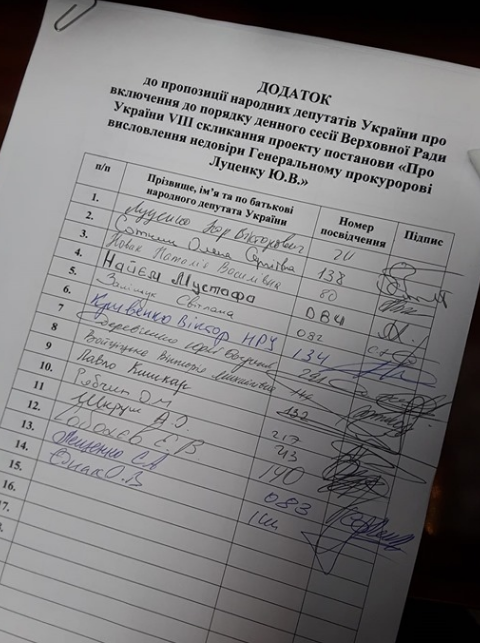 ДОДАТОК
до пропозиції народних депутатів України про
включення до порядку денного сесії Верховної Ради
України VIII скликання проекту постанови «Про
висловлення недовіри Генеральному прокуророві
Луценку Ю.В.»
п/п Прізвище, ім'я та по батькові народного депутата України Номер посвідчення Підпис
1. Луценко Ігор Вікторович 24
2. Сотник Олена Сергіївна 138
3. Новак Наталія Василівна 80
4. Найєм Мустафа 084
5. Заліщук Світлана 082
6. Кривенко Віктор НРУ 134
7 Дерев'янко Юрій
8 Войціцька Вікторія Михайлівна
9 Павло Кишкар 132
10. Рябчин О.М. 217
11 Шкрум А.І. 43
12. Соболєв Є В 140
13. Лещенко С.А. 083
14. О.В
15.
16.
17.